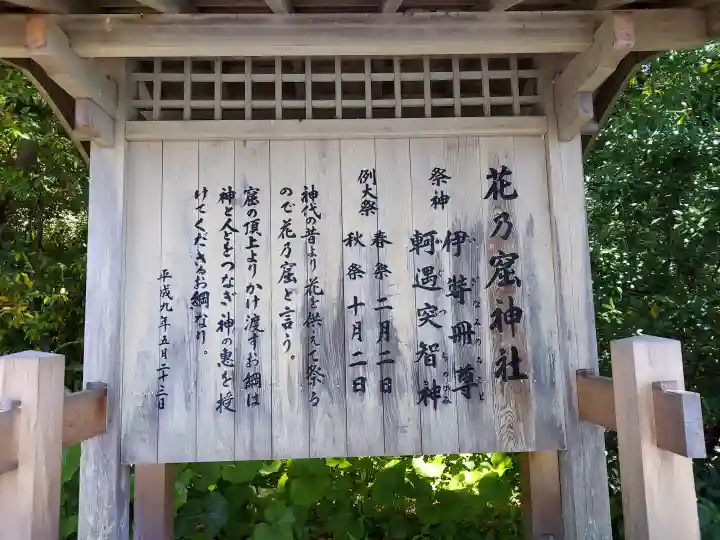 花乃窟神社
祭神 伊弉冊尊
いざなみのみこと
軻遇突智神
かぐつちのかみ
例大祭 春祭 二月二日
秋祭 十月二日
神代の昔より花を供えて祭る
ので花乃窟と言う。
窟の頂上よりかけ渡すお綱は
神と人とをつなぎ神の恵を授
けてくださるお綱なり。
平成九年五月二十三日